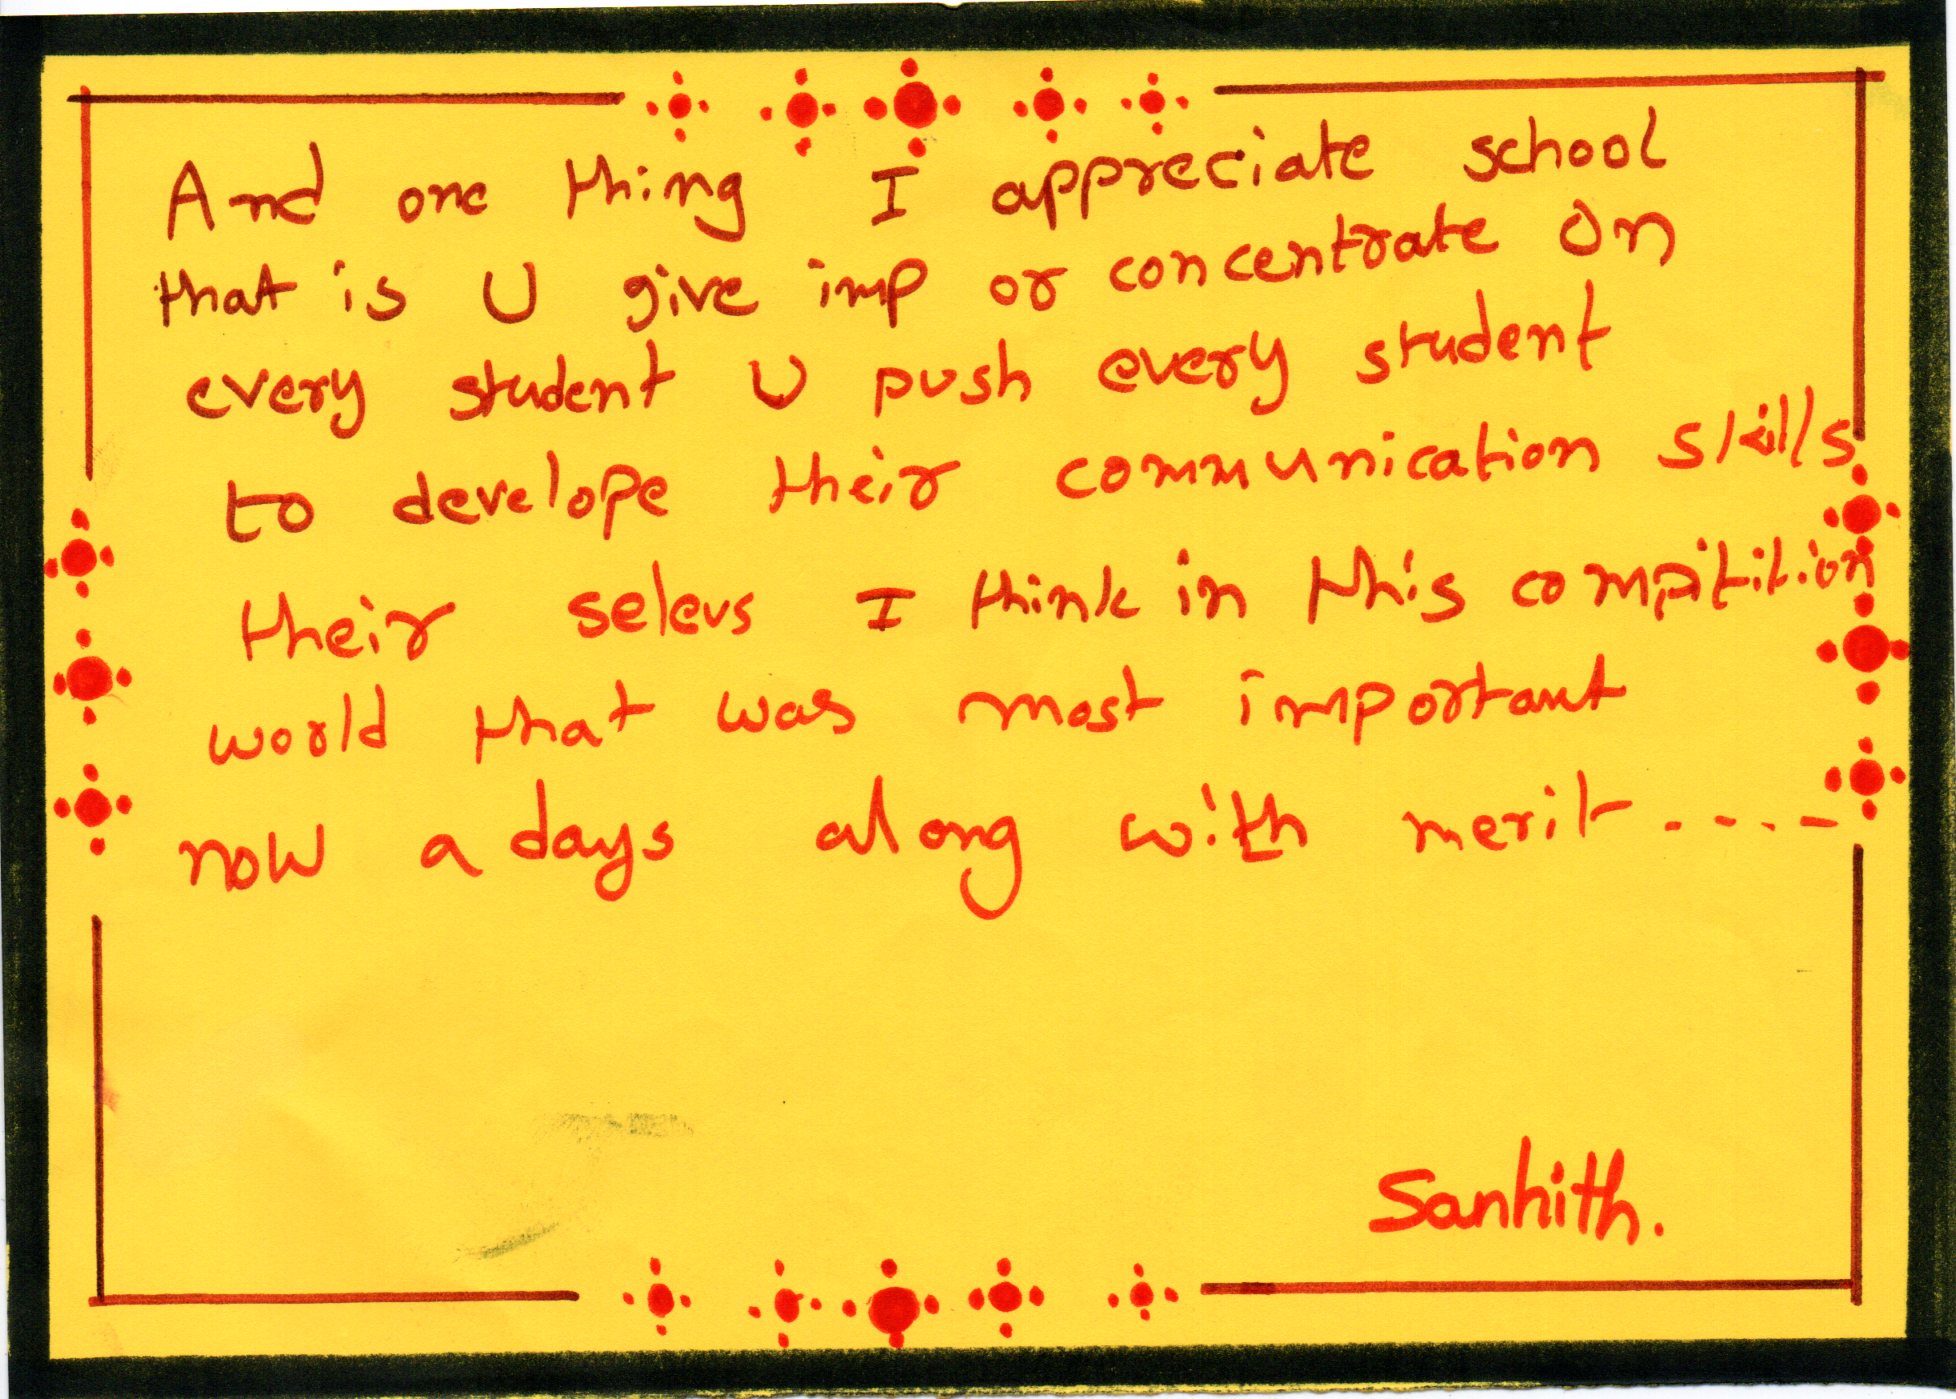 And one thing I appreciate school
that is U give imp or concentrate on
every student U push every student
to develope their communication skills
their selevs I think in this compitition
world that was most important
now a days along with merit ----
Sanhith.